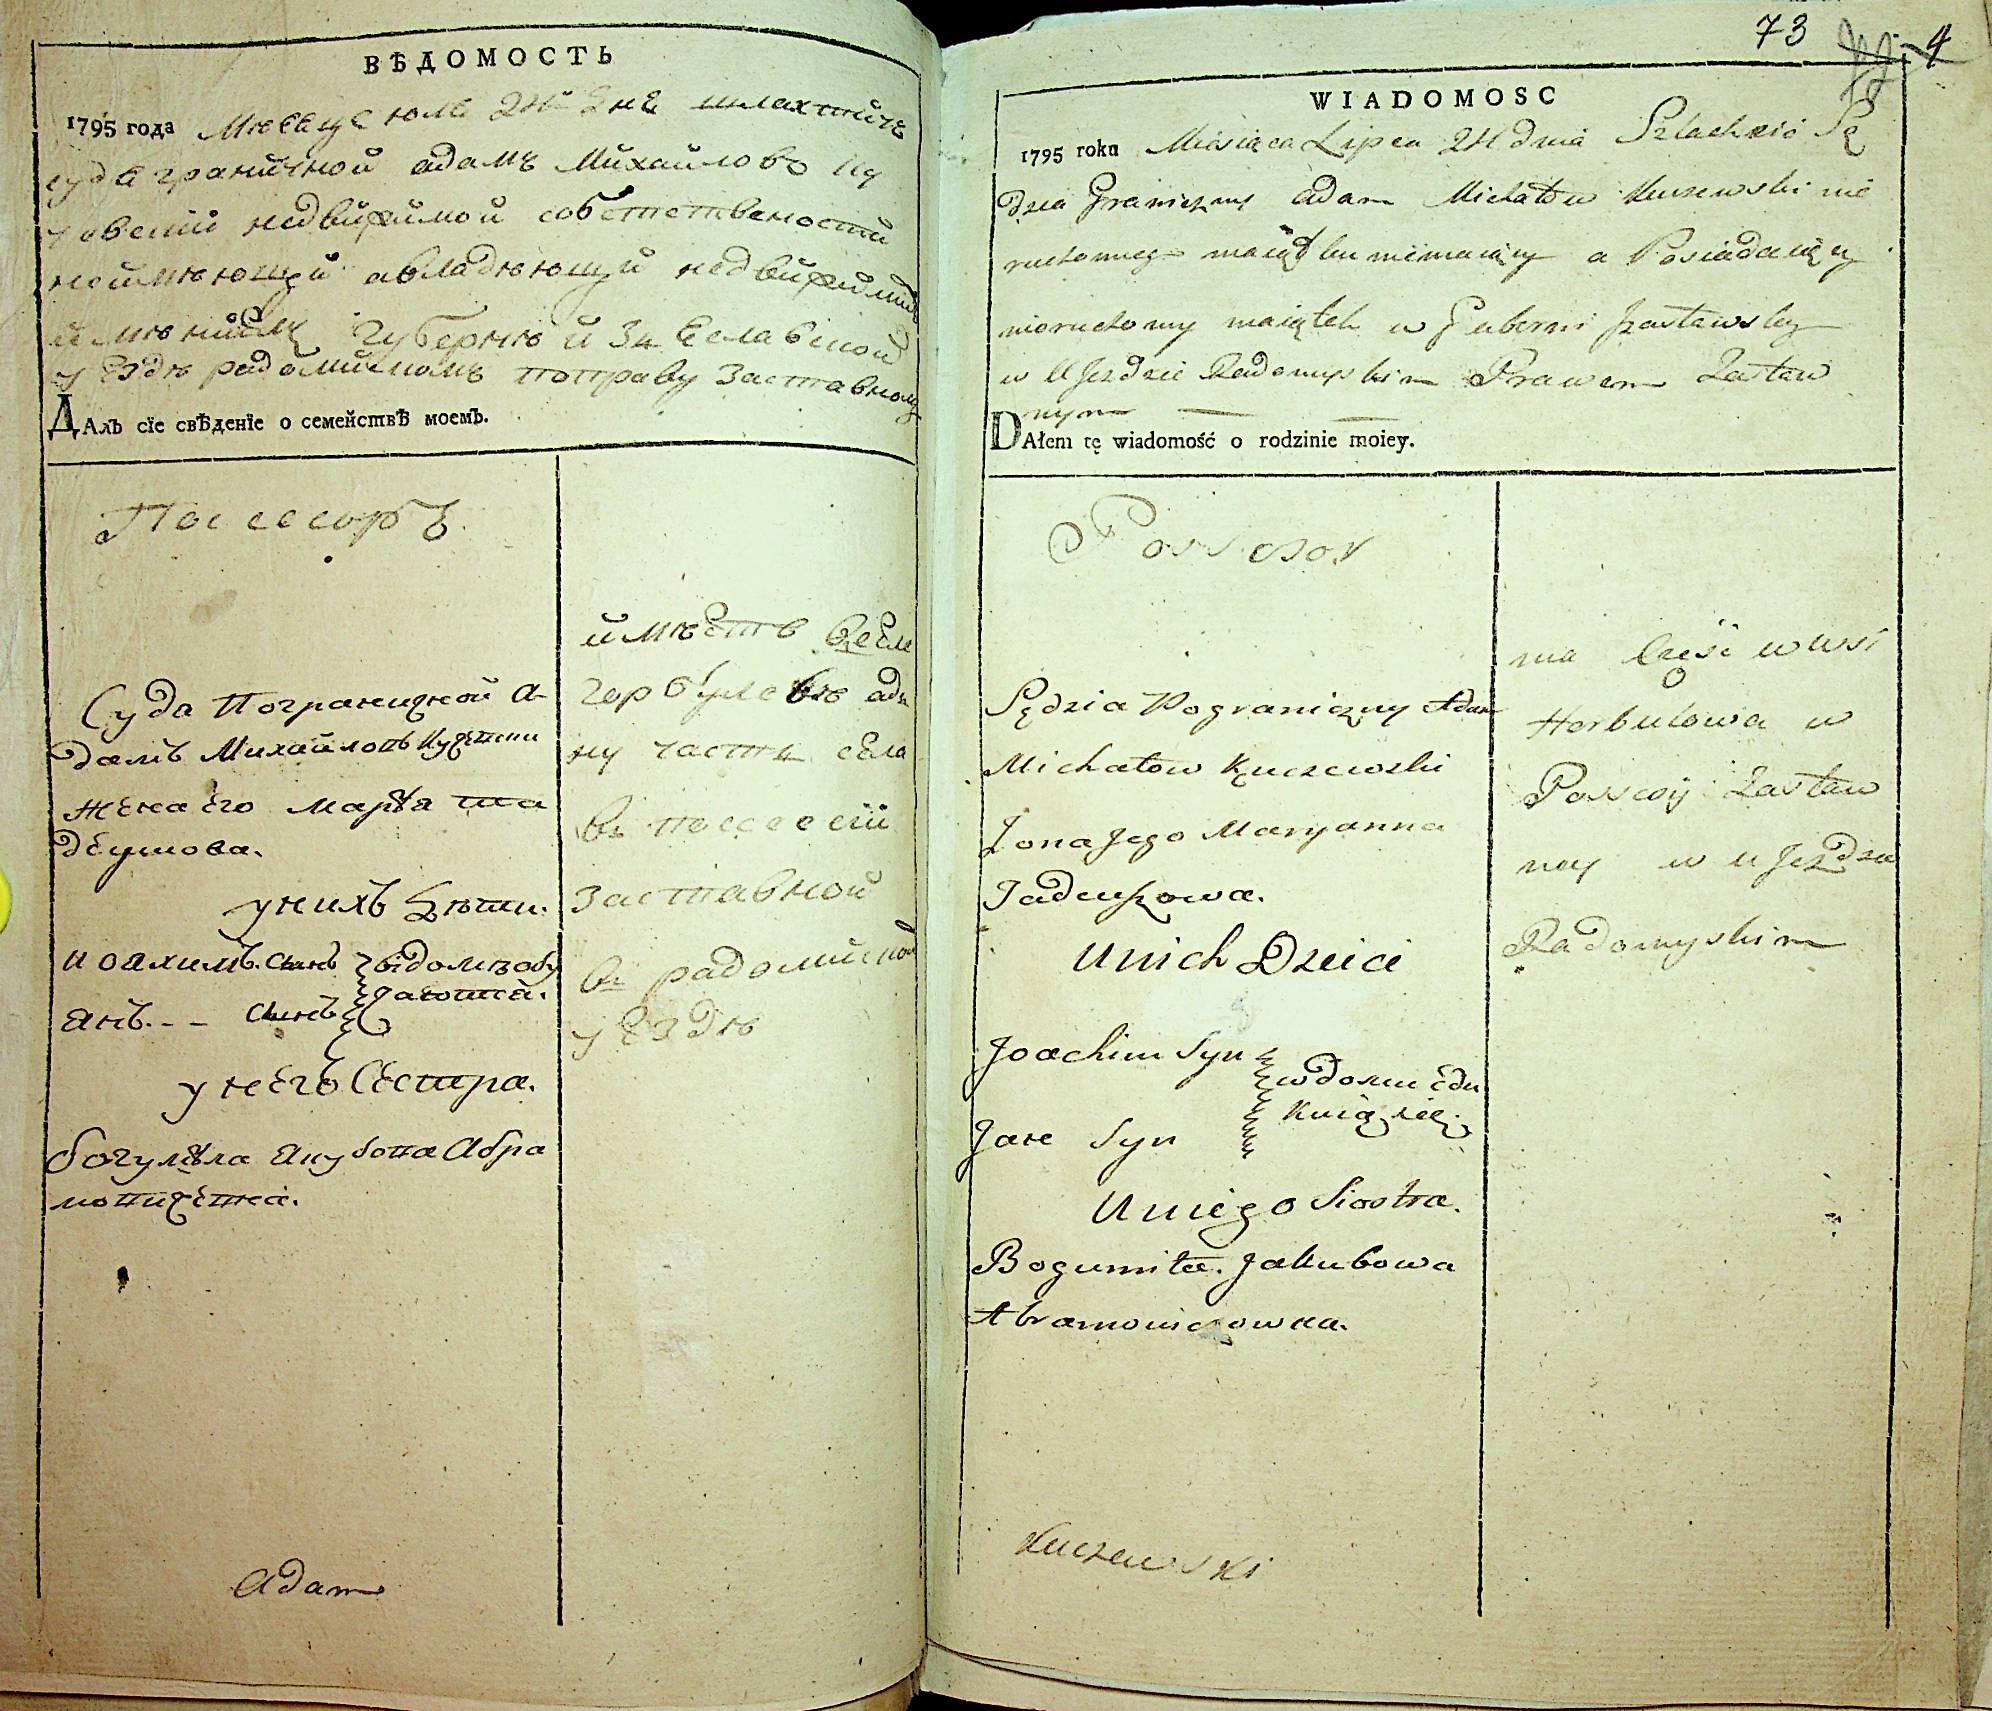 ВѢДОМОСТЬ
1795 года Мѣсяца юля 24 дня шляхтичъ
суда граничной адамъ Михайлово Ку
чевскій недвижимой собственности
неимѣющій авладѣющій недвижимимъ
имѣнийемъ Губернѣй Заеславской
уездѣ радомислѣмъ поправу заставному
ДАлъ сїе свѣденїе о семействѣ моемъ.
Поссесоръ
Суда Пограничной А-
дамъ Михайловъ Кучевски
жена его Маріа Та
деушова.
у нихъ Дѣти.
иоахимъ. сынъ
вдомѣ обу
чаются.
Янъ. - - сынъ
у него Сестра.
богумила Якубова Абра
мовичовна.
имѣетъ в селе
горбулевѣ адн
ну часть села
въ поссессій
заставной
въ радомиской
уездѣ
Adam
73
4
WIADOMOSC
1795 roku Miesiąca Lipca 24 dnia Szlachcic Sę
dzia Graniczny Adam Michałow Kuczewski nie
ruchomego maiątku niemaiący a Posiadaiący
nieruchomy maiątek w Gubernii Izasławskiey
w Ujezdzie Radomyskim Prawem Zastaw
nym
DAłem tę wiadomość o rodzinie moiey.
Possessor
Sędzia Pograniczny Adam
Michałow Kuczewski
Żona Jego Maryanna
Tadeuszowa.
U nich Dzieci
Joachim Syn
w domu Edu
kuią się.
Jan Syn
U niego Siostra.
Bogumiła. Jakubowa
Abramowiczowna.
ma Część w wsi
Horbulowa w
Possesyi Zastaw
ney w Ujezdzie
Radomyskim
Kuczewski